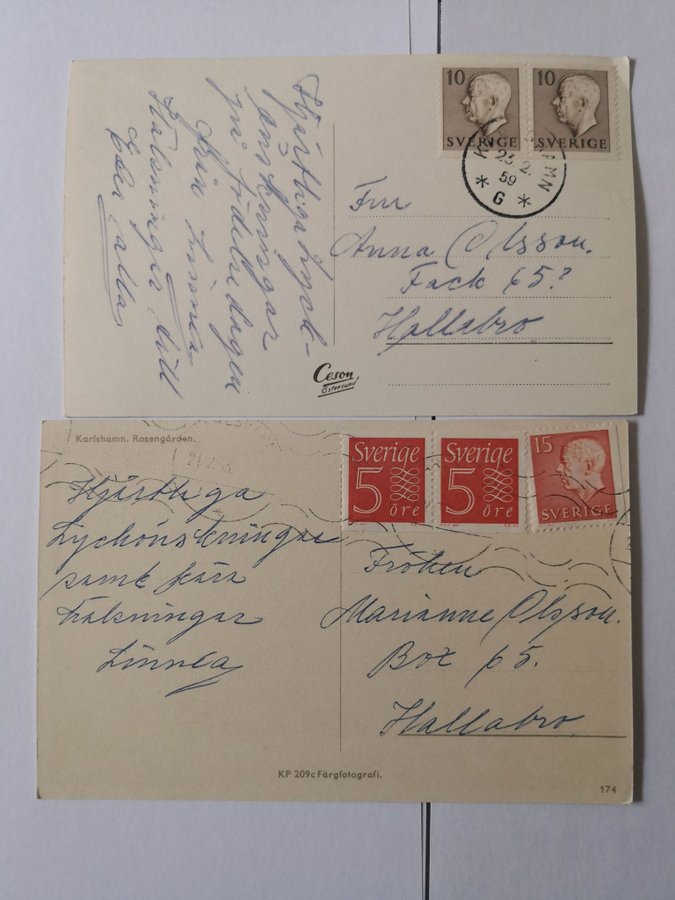 10
10
SVERIGE
SVERIGE
23 2
59
* G *
Hjärtliga Lyck-
önskningar
på födelsedagen
från Linnea
Hälsningar till
Eder alla
Fru
Anna Olsson.
Fack 65?
Hallabro
Ceson
Östersund
Karlshamn. Rosengården.
Sverige
5
öre
Sverige
5
öre
15
SVERIGE
Hjärtliga
Lyckönskningar
samt kära
hälsningar
Linnea
Fröken
Marianne Olsson.
Box 65.
Hallabro
KP 209c Färgfotografi.
174